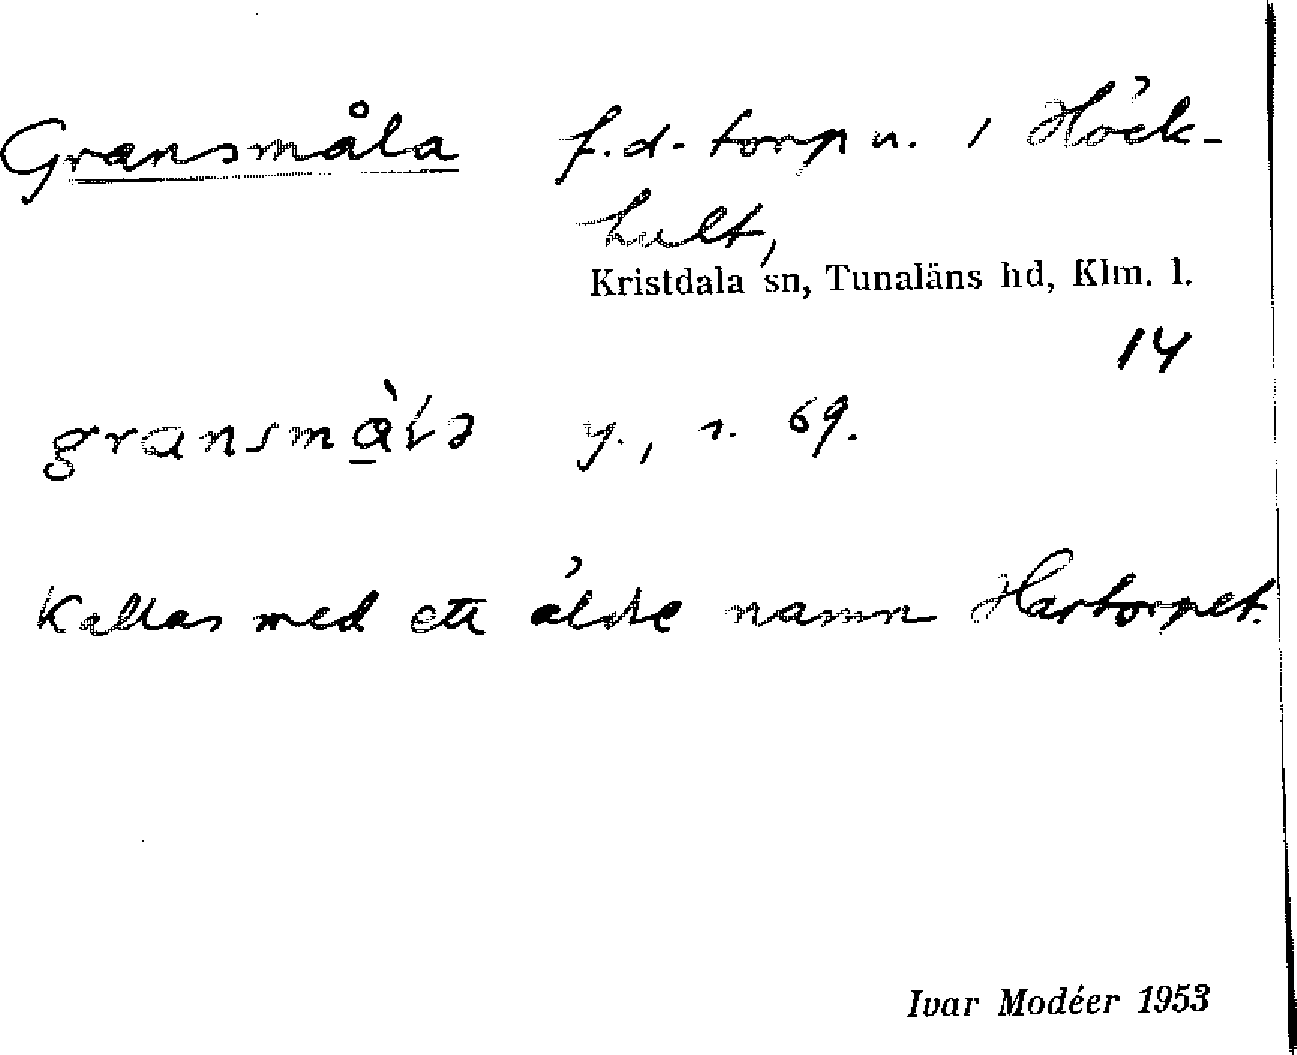 Gransmåla f.d. torp u. / Höck-
hult,
Kristdala sn, Tunaläns hd, Klm. l.
14
gransmà̱ƚa y., s. 69.
Kallas med ett äldre namn Hartorpet.
Ivar Modéer 1953